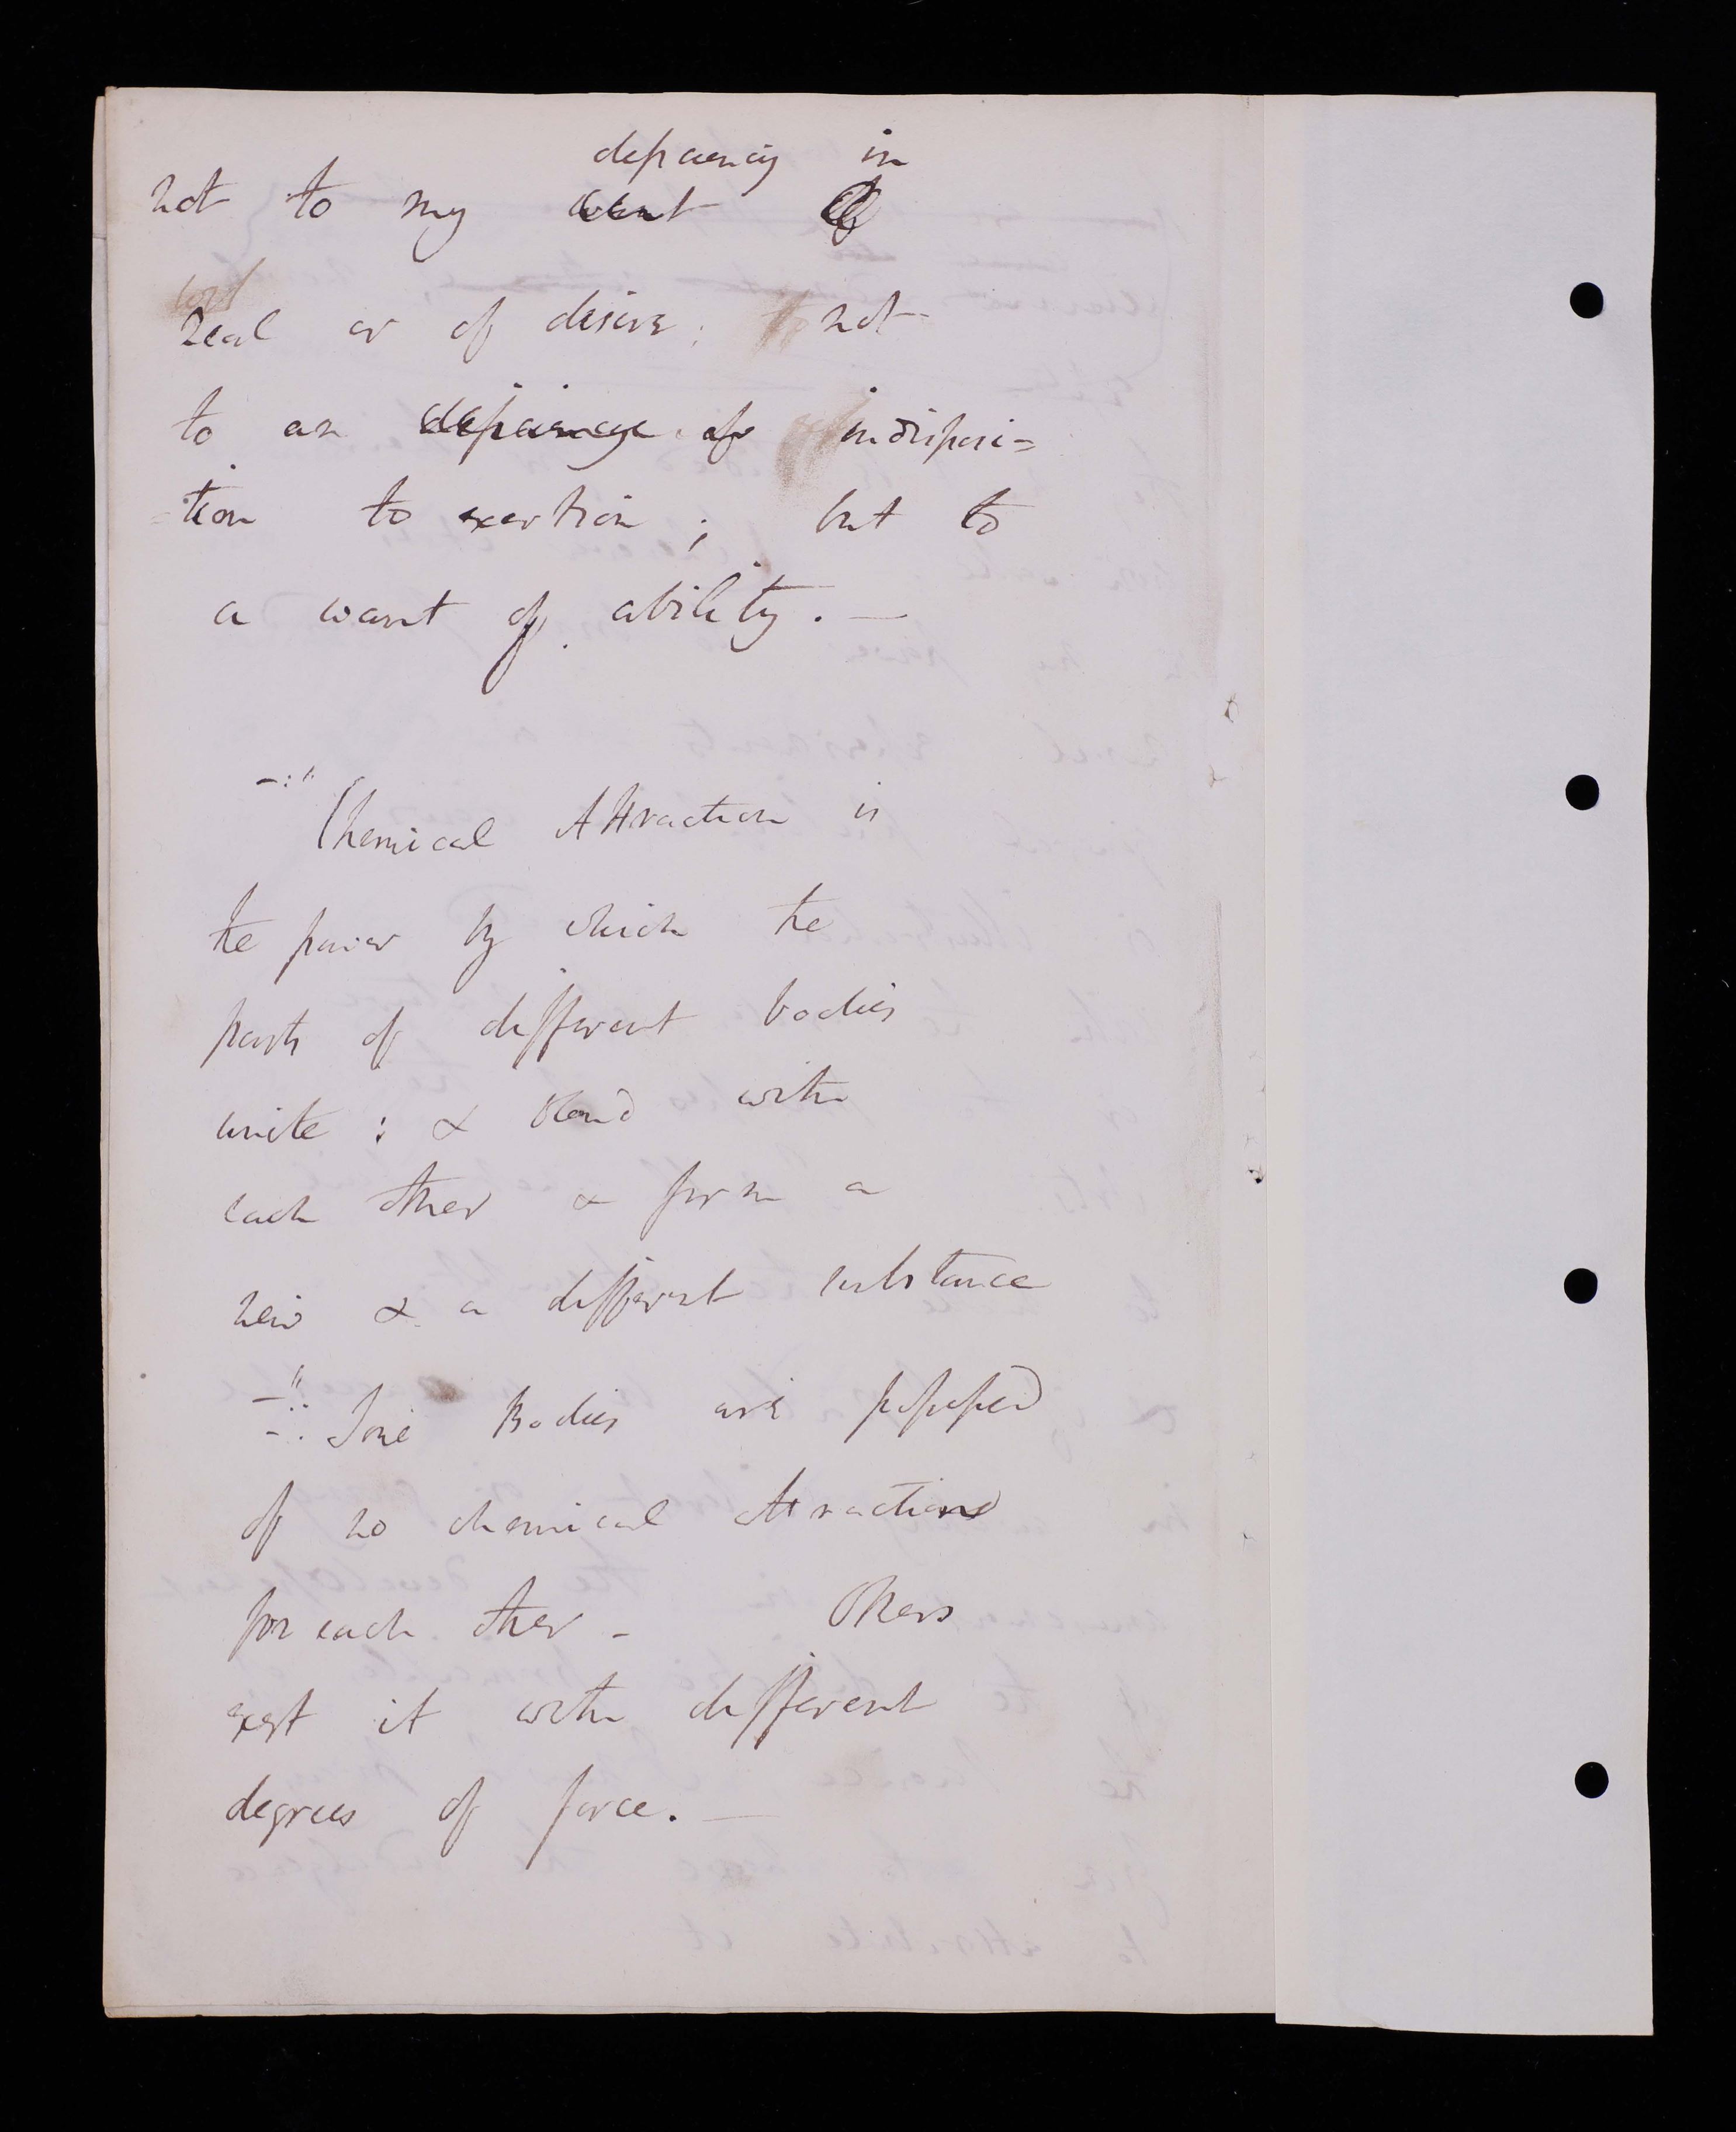 deficiency in
not to my want of
zeal or of desire; not
to an deficiency of indisposi=
=tion to exertion; but to
a want of ability. —
—:" Chemical Attraction is
the power by which the
parts of different bodies
unite: & blend with
each other & form a
new & a different substance
—":. Some Bodies are possessed
of no chemical attraction
for each other - Others
exert it with different
degrees of force. —